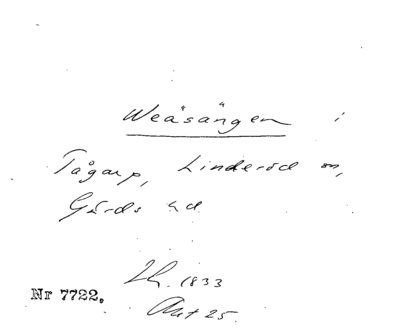 Weåsången i
Tågarp, Linderöd sn,
Gärds hd
1833
Nr 7722.
Akt 25